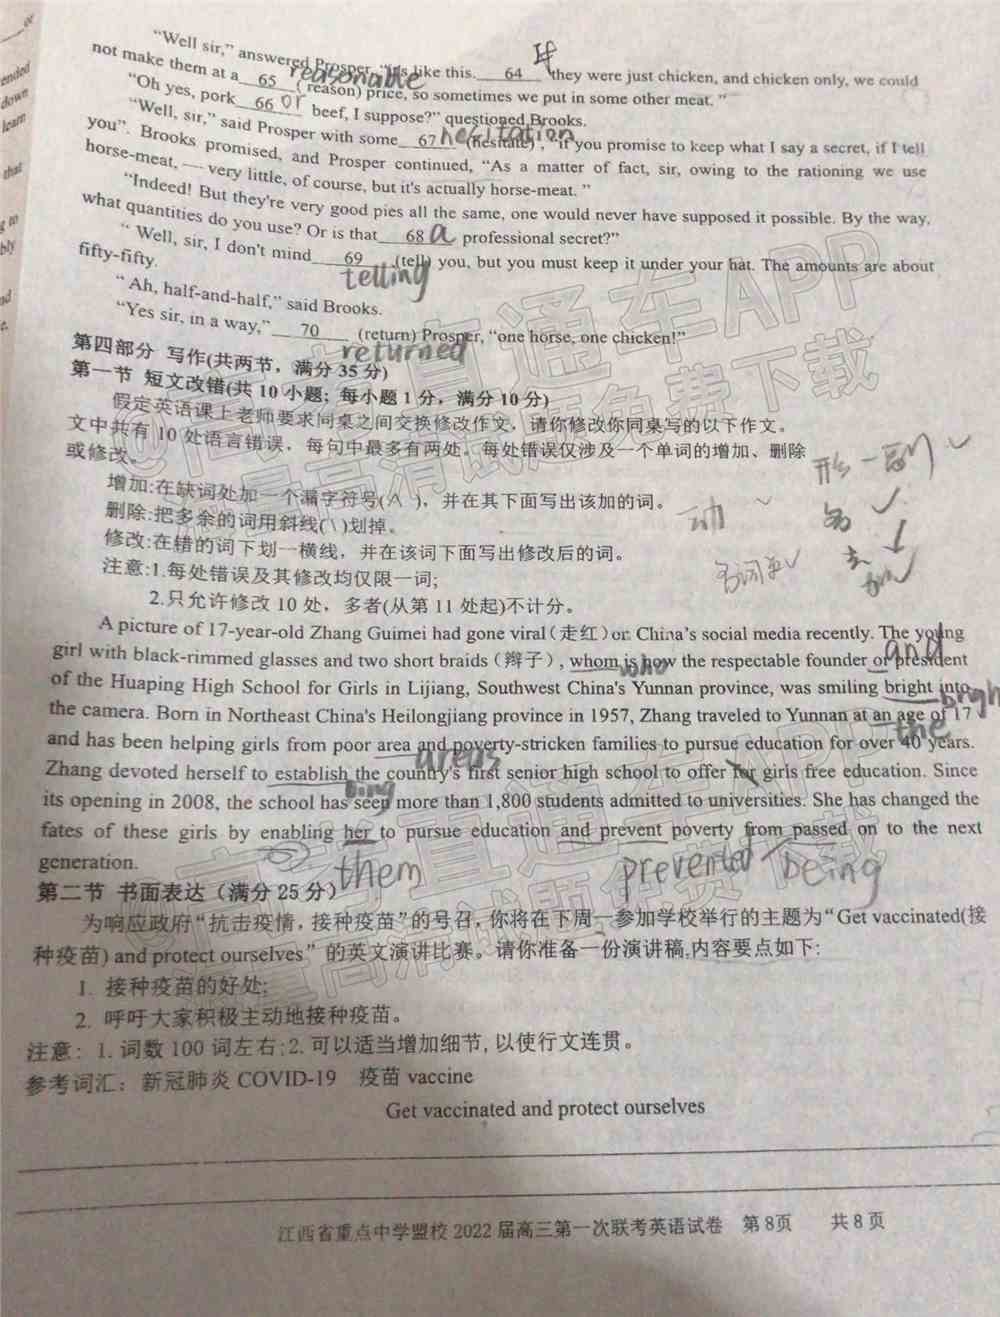 "Well sir," answered Prosper, "it's like this. 64 If they were just chicken, and chicken only, we could
not make them at a 65 reasonable (reason) price, so sometimes we put in some other meat."
"Oh yes, pork 66 or beef, I suppose?" questioned Brooks.
"Well, sir," said Prosper with some 67 hesitation (hesitate), "if you promise to keep what I say a secret, if I tell
you". Brooks promised, and Prosper continued, "As a matter of fact, sir, owing to the rationing we use
horse-meat, — very little, of course, but it's actually horse-meat."
"Indeed! But they're very good pies all the same, one would never have supposed it possible. By the way,
what quantities do you use? Or is that 68 a professional secret?"
"Well, sir, I don't mind 69 (tell) you, but you must keep it under your hat. The amounts are about
telling
fifty-fifty.
"Ah, half-and-half," said Brooks.
"Yes sir, in a way," 70 (return) Prosper, "one horse, one chicken!"
returned
第四部分 写作(共两节，满分35分)
第一节 短文改错(共10小题; 每小题1分，满分10分)
假定英语课上老师要求同桌之间交换修改作文，请你修改你同桌写的以下作文。
文中共有10处语言错误，每句中最多有两处。每处错误仅涉及一个单词的增加、删除
或修改。
增加:在缺词处加一个漏字符号(∧)，并在其下面写出该加的词。
删除:把多余的词用斜线(\)划掉。
修改:在错的词下划一横线，并在该词下面写出修改后的词。
注意:1.每处错误及其修改均仅限一词;
2.只允许修改10处，多者(从第11处起)不计分。
形一副
动
名
名词
去
A picture of 17-year-old Zhang Guimei had gone viral(走红)on China's social media recently. The young
girl with black-rimmed glasses and two short braids(辫子), whom is now the respectable founder or president
who
and
of the Huaping High School for Girls in Lijiang, Southwest China's Yunnan province, was smiling bright into
the camera. Born in Northeast China's Heilongjiang province in 1957, Zhang traveled to Yunnan at an age of 17
the
and has been helping girls from poor area and poverty-stricken families to pursue education for over 40 years.
areas
Zhang devoted herself to establish the country's first senior high school to offer for girls free education. Since
ing
its opening in 2008, the school has seen more than 1,800 students admitted to universities. She has changed the
fates of these girls by enabling her to pursue education and prevent poverty from passed on to the next
them
prevented
being
generation.
第二节 书面表达(满分25分)
为响应政府"抗击疫情，接种疫苗"的号召，你将在下周一参加学校举行的主题为"Get vaccinated(接
种疫苗) and protect ourselves"的英文演讲比赛。请你准备一份演讲稿,内容要点如下:
1. 接种疫苗的好处;
2. 呼吁大家积极主动地接种疫苗。
注意: 1. 词数100词左右;2. 可以适当增加细节, 以使行文连贯。
参考词汇: 新冠肺炎 COVID-19 疫苗 vaccine
Get vaccinated and protect ourselves
江西省重点中学盟校2022届高三第一次联考英语试卷 第8页 共8页